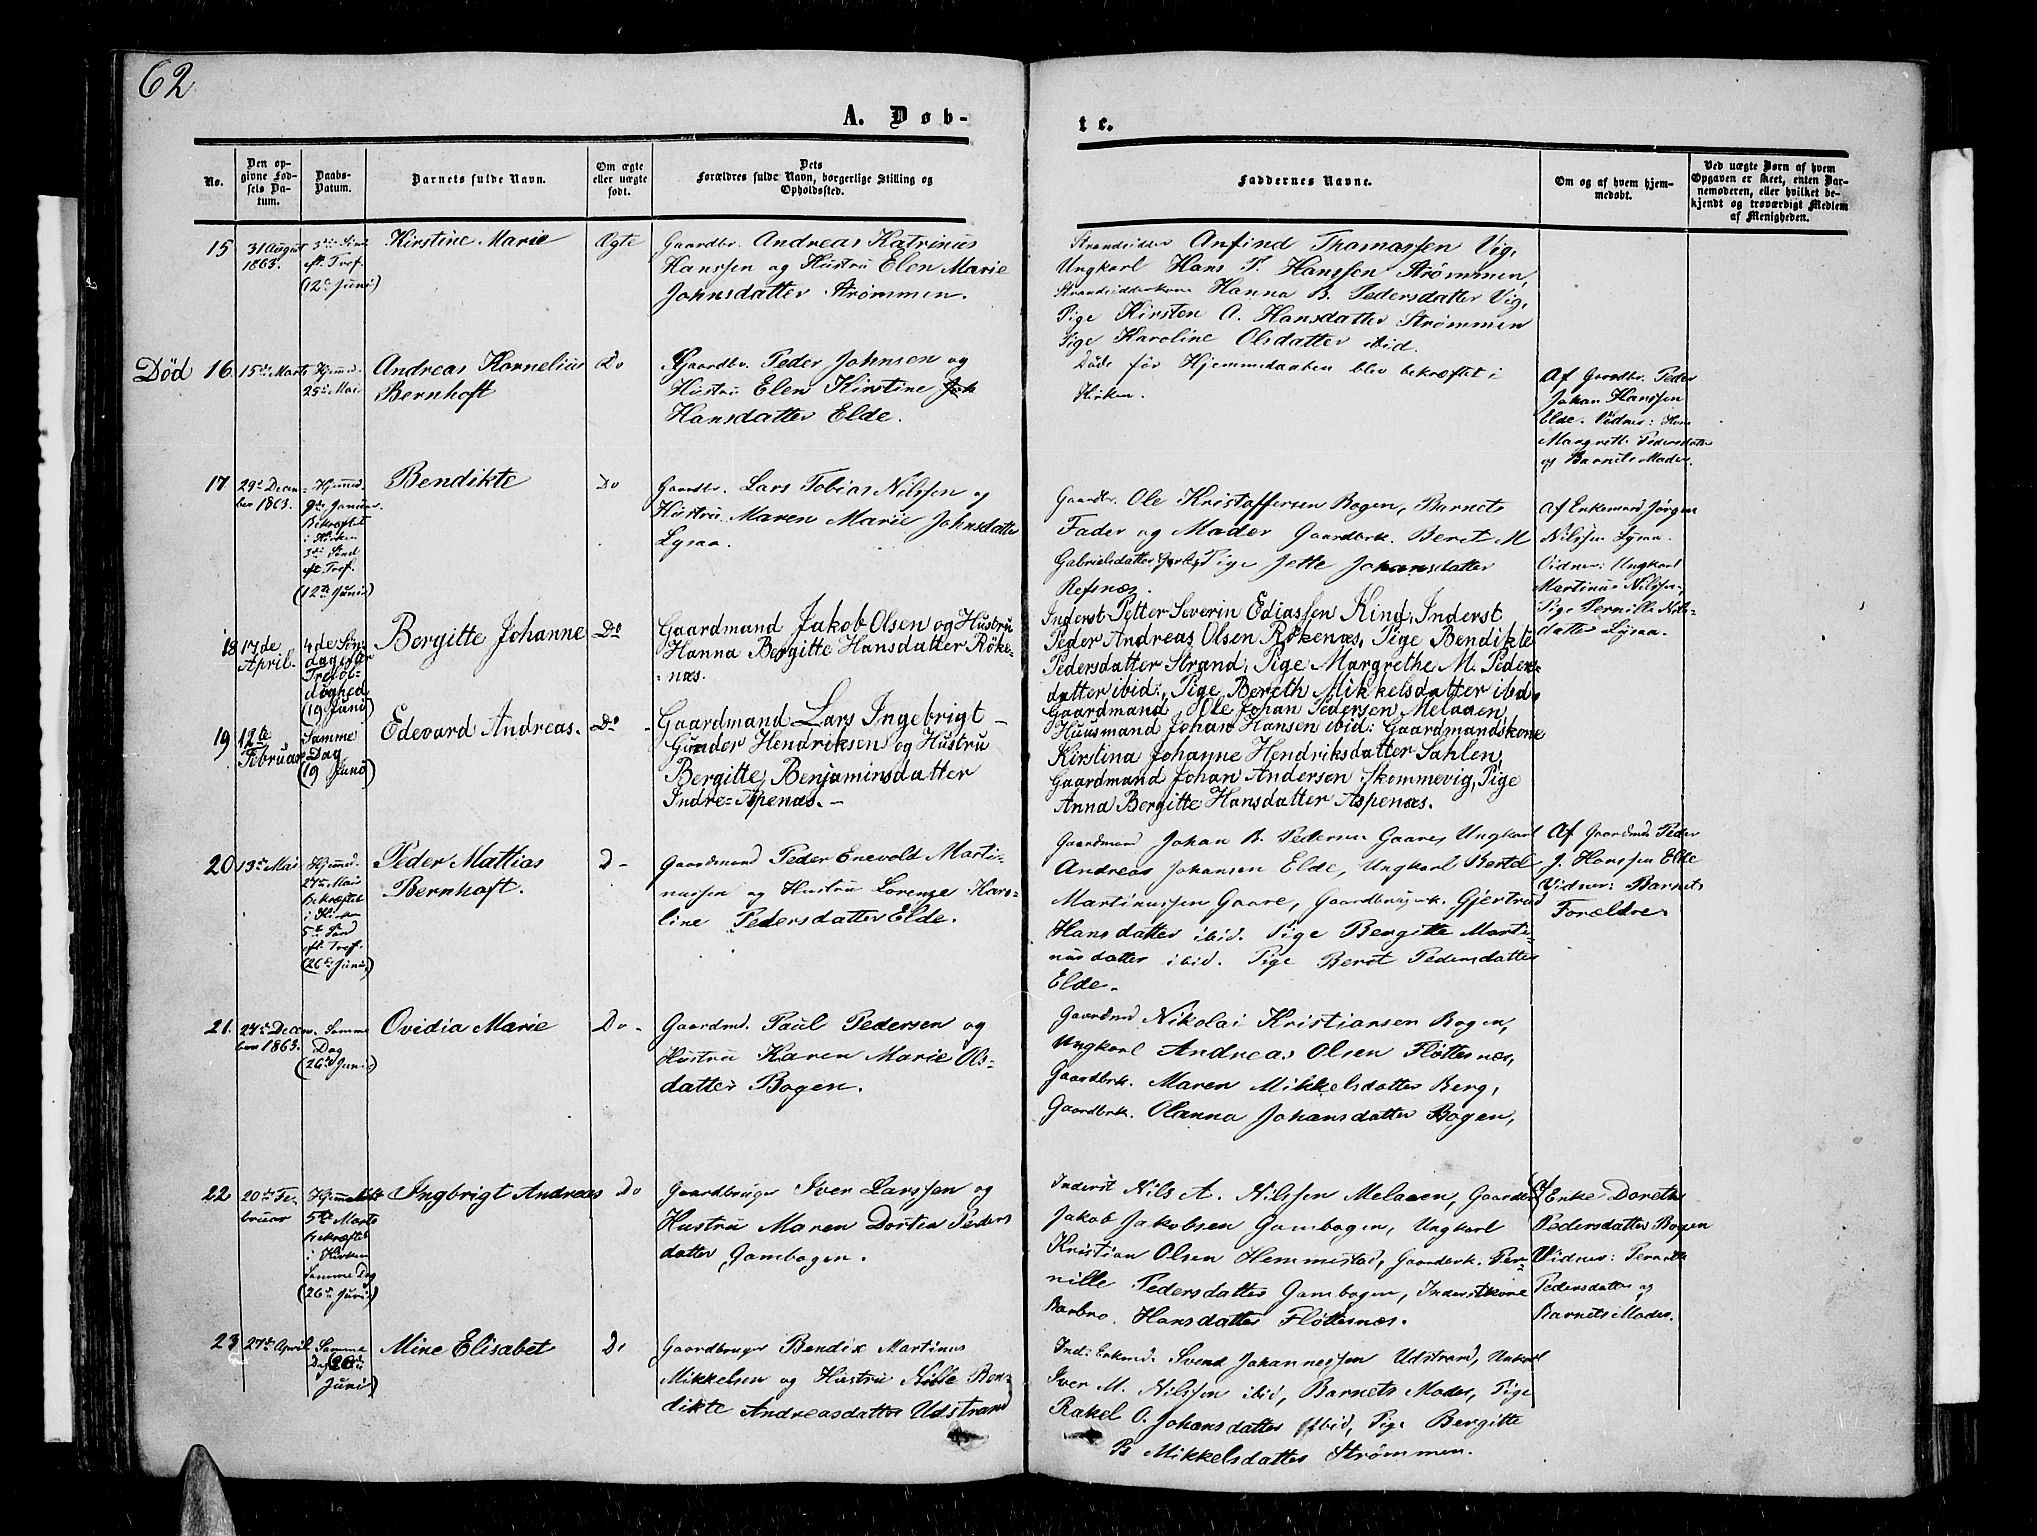 62
A. Døb-
te.
No.
Den op-
givne Fød-
sels Da-
tum.
Daabs-
Datum.
Barnets fulde Navn.
Om ægte
eller uægte
født.
Dets
Forældres fulde Navn, borgerlige Stilling og
Opholdssted.
Faddernes Navne.
Om og af hvem hjem-
medøbt.
Ved uægte Børn af hvem
Opgaven er skeet, enten Bar-
nemoderen, eller hvilket be-
kjendt og troværdigt Medlem
af Menigheden.
15
31 August
1863.
3die Sønd
eft. Tref.
(12te Juni)
Kirstine Marie
Ægte
Gaardbr. Andreas Katrinus
Hanssen og Hustru Elen Marie
Johnsdatter Strømmen.
Strandsidder Anfind Thomassen Vig,
Ungkarl Hans P. Hanssen Strømmen,
Strandsidderkone Hanna B. Pedersdatter Vig,
Pige Kirsten A. Hansdatter Strømmen
Pige Karoline Olsdatter ibid.
Død
16
15de Marts
Hjemmed.
25de Mai
Andreas Kornelius
Bernhoft
Do
Gaardbr. Peder Johnsen og
Hustru Elen Kirstine Joh
Hansdatter Elde.
Døde før Hjemmedaaben blev bekræftet i
Kirken.
Af Gaardbr. Peder
Johan Hanssen
Elde. Vidner:
Margreth. Pedersdatter
og Barnets Moder.
17
29de Decem-
ber 1863.
Hjemmed.
9de Januar.
Bekræftet
i Kirken
3die Sønd
eft Tref.
(12te Juni)
Bendikte
Do
Gaardbr. Lars Tobias Nilssen og
Hustru Maren Marie Johnsdatter
Lysaa.
Gaardbr. Ole Kristoffersen Bogen, Barnets
Fader og Moder Gaardbrk. Beret M
Gabrielsdatter Pige Jette Johansdatter
Refsnæs.
Af Enkemand Jørgen
Nilssen Lysaa.
Vidner: Ungkarl
Martinus Nilssen,
Pige Pernille Nils-
datter Lysaa.
18
17de
April.
4de Søn-
dag efter
Trefol-
dighed
(19 Juni)
Bergitte Johanne
Do
Gaardmand Jakob Olsen og Hustru
Hanna Bergitte Hansdatter Røke-
næs.
Inderst Petter Severin Ediassen King, Inderst
Peder Andreas Olsen Rökenæs, Pige Bendikte
Pedersdatter Strand, Pige Margrethe M. Peders-
datter ibid:, Pige Bereth Mikkelsdatter ibd.
19
12te
Februar
Samme
Dag
(19 Juni)
Edevard Andreas.
Do
Gaardmand Lars Ingebrigt
Gunder Hendriksen og Hustru
Bergitte Benjaminsdatter
Indre-Aspenæs.
Gaardmand Ole Johan Pedersen Melaaen,
Huusmand Johan Hansen ibid: Gaardmandskone
Kirstina Johanne Hendriksdatter Sahlen,
Gaardmand Johan Andersen Skommevig, Pige
Anna Bergitte Hansdatter Aspenæs.
20
13de Mai
Hjemmed.
27de Mai
Bekræftet
i Kirken
5te Sønd
eft Tref.
(26de Juni)
Peder Mattias
Bernhoft.
D-
Gaardmand Peder Enevold Marti-
nussen og Hustru Lorenze Karo-
line Pedersdatter Elde.
Gaardmand Johan B. Pedersen Gaare, Ungkarl
Andreas Johansen Elde, Ungkarl Bertel
Martinussen Gaare, Gaardbrugerk. Gjertrud
Hansdatter ibid. Pige Bergitte Marti-
nusdatter ibid. Pige Beret Pedersdatter
Elde.
Af Gaardmd Peder
J. Hanssen Elde
Vidner: Barnets
Forældre.
21.
27de Decem-
ber 1863.
Samme
Dag
(26de Juni)
Ovidia Marie
Do-
Gaardmd. Paul Pedersen og
Hustru Karen Marie Ols-
datter Bogen.
Gaardmd Nikolai Kristiansen Bogen,
Ungkarl Andreas Olsen Fløttenæs,
Gaardbrk. Maren Mikkelsdatter Berg,
Gaardbrk. Olanna Johansdatter Bogen,
22
20de Fe-
bruar
Hjemmedøbt
5te Marts
Bekræftet
i Kirken
Samme Dag
(26de Juni)
Ingbrigt Andreas
Do
Gaardbruger Iver Larssen og
Hustru Maren Dortea Peders
datter Gambogen.
Inderst Nils A. Nilssen Melaaen, Gaardbr
Jakob Jakobsen Gambogen, Ungkarl
Kristian Olsen Hemmestad, Gaardbrk. Per-
nille Pedersdatter Gambogen, Inderstkone
Barbro Hansdatter Fløttenæs.
Af Enke Doreth
Pedersdatter Bogen
Vidner: Pernille
Pedersdatter og
Barnets Moder.
23
27de April
Samme
Dag (26de
Juni)
Mine Elisabet
Do
Gaardbruger Bendix Martinus
Mikkelsen og Hustru Nille Ben-
dikte Andreasdatter Udstrand
Ind: Enkmd. Svend Johannessen Udstrand, Unkarl
Iver M. Nilssen ibid, Barnets Moder, Pige
Rakel O. Johansdatter ibid, Pige Bergitte
B Mikkelsdatter Strømmen.